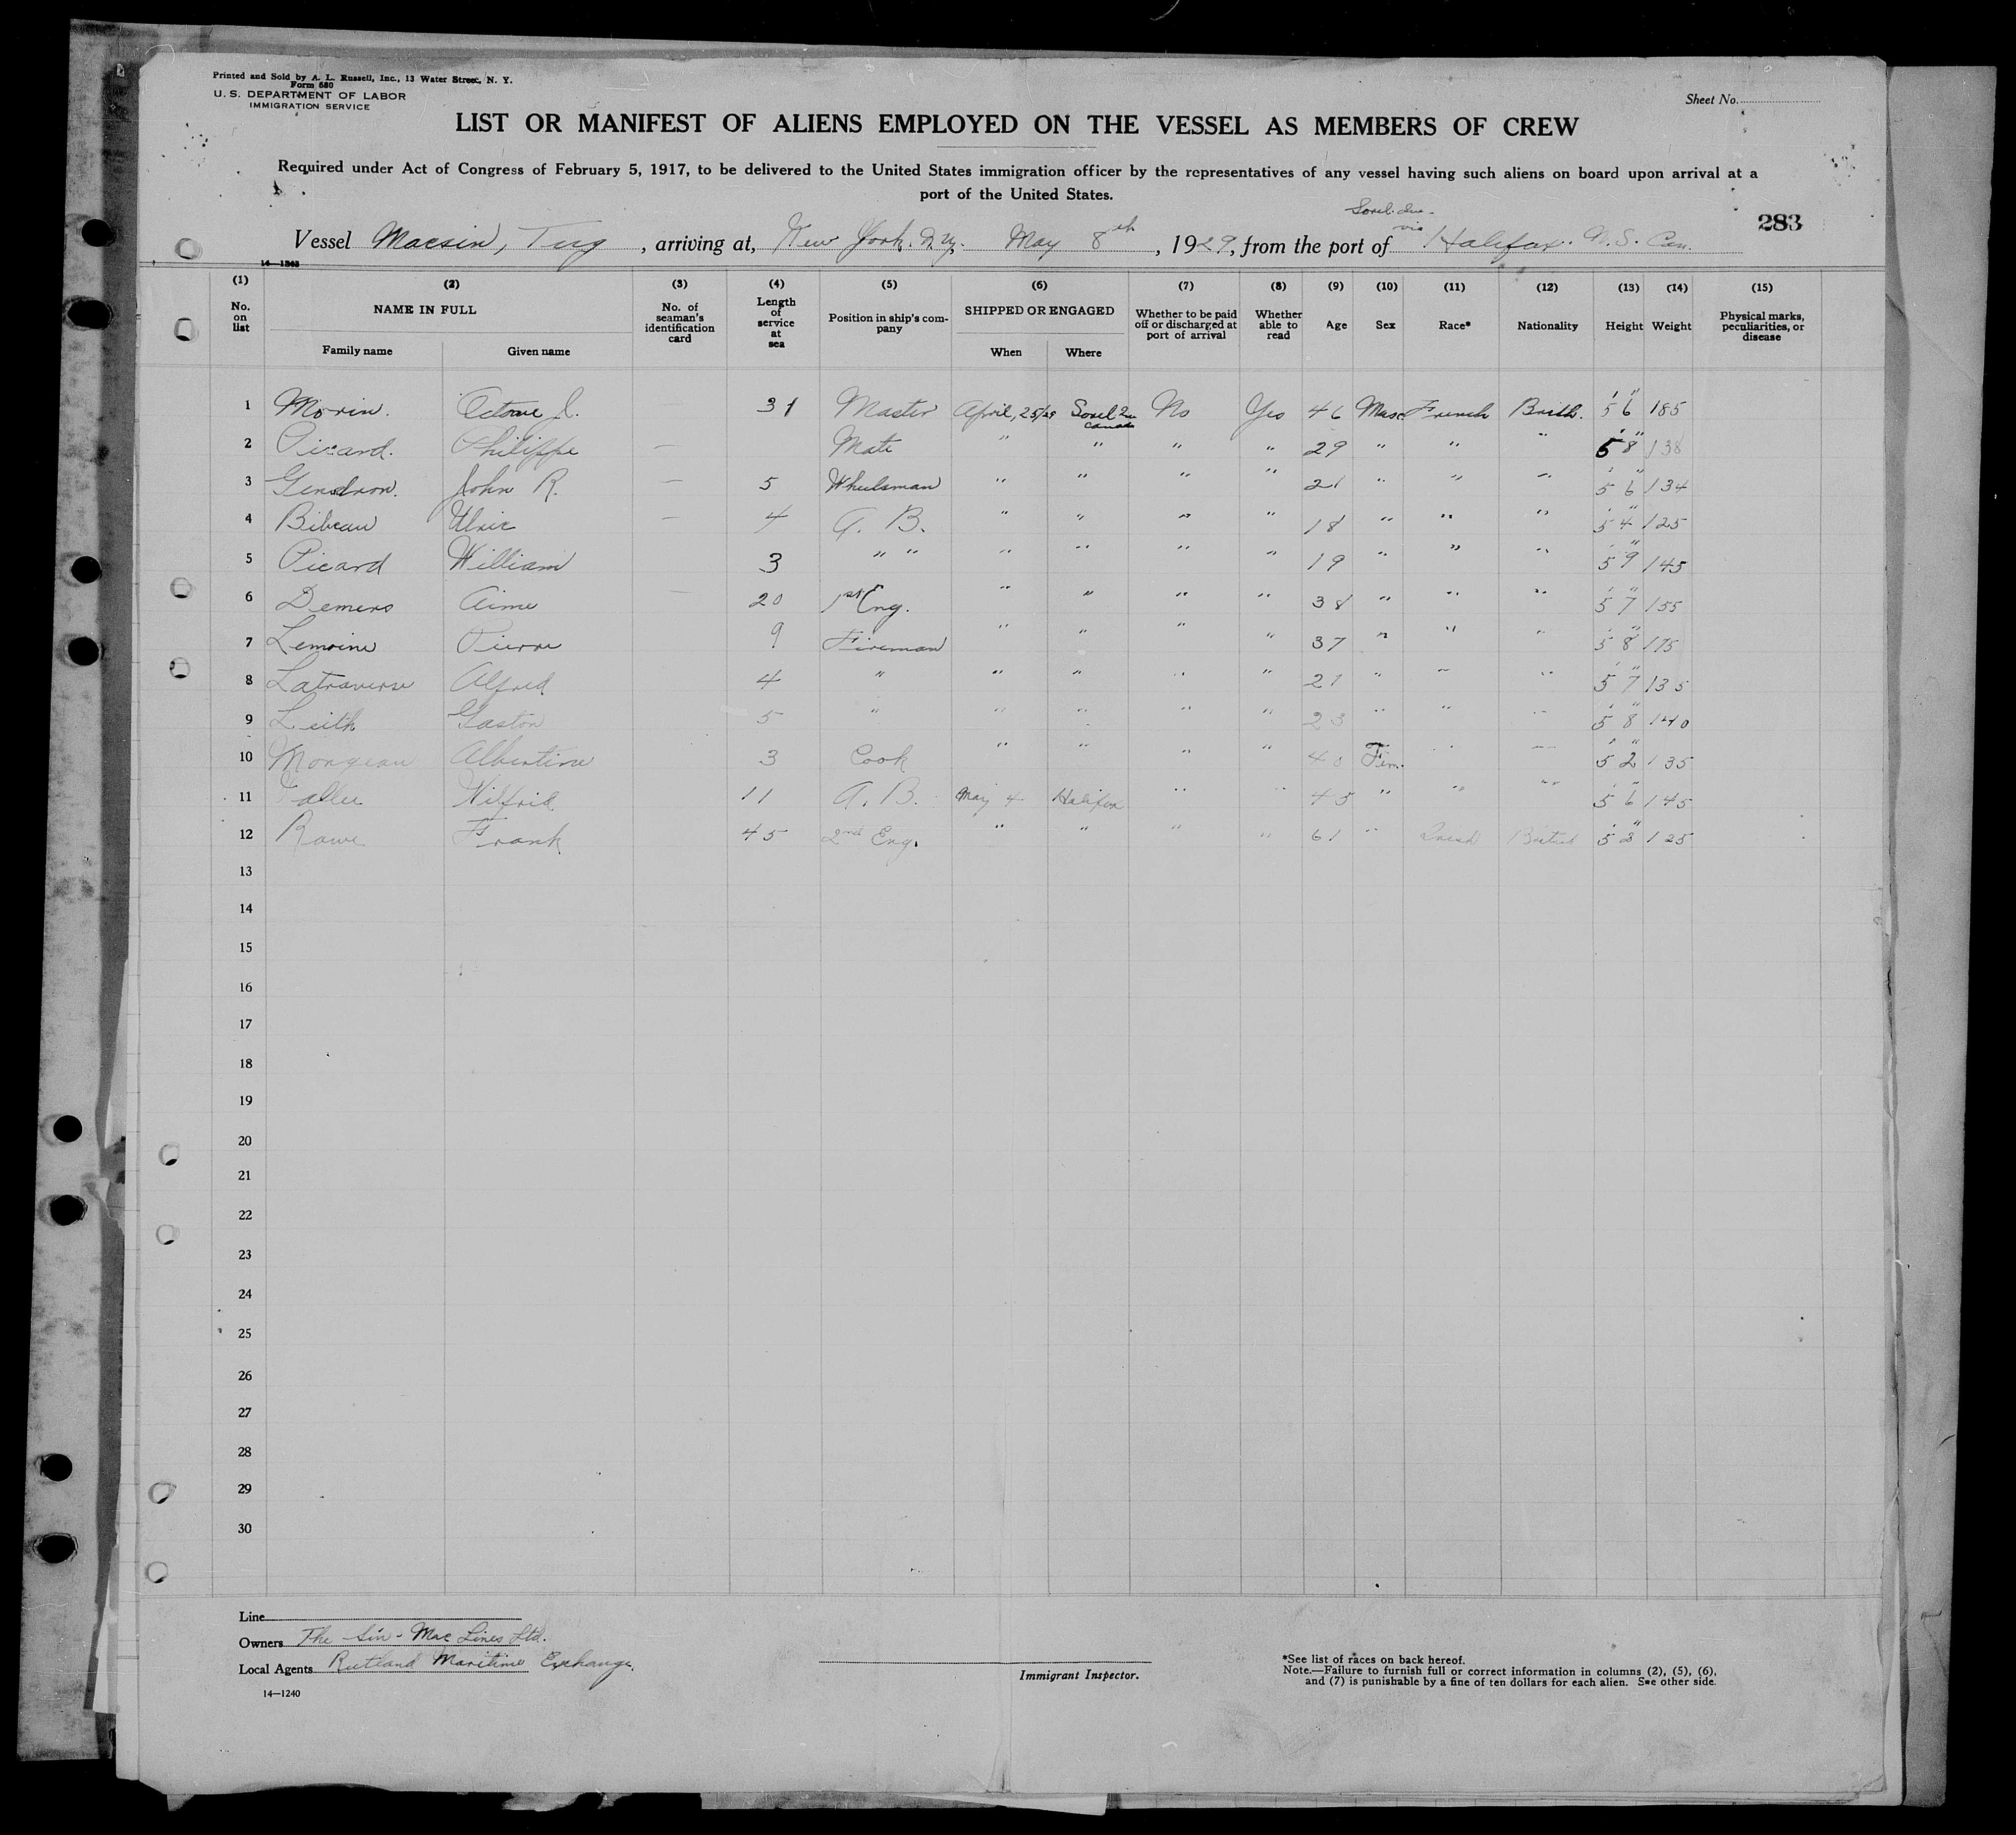 Printed and Sold by A. L. Russell, Inc., 13 Water Street, N. Y.
Form 680
U. S. DEPARTMENT OF LABOR
IMMIGRATION SERVICE
Sheet No.
LIST OR MANIFEST OF ALIENS EMPLOYED ON THE VESSEL AS MEMBERS OF CREW
Required under Act of Congress of February 5, 1917, to be delivered to the United States immigration officer by the representatives of any vessel having such aliens on board upon arrival at a
port of the United States.
283
Vessel Macsin, Tug, arriving at, New York. N.Y. May 8th, 1929, from the port of via Halifax. N.S. Can.
14—1240
(1) (2) (3) (4) (5) (6) (7) (8) (9) (10) (11) (12) (13) (14) (15)
No. on list NAME IN FULL Family name Given name No. of seaman's identification card Length of service at sea Position in ship's company SHIPPED OR ENGAGED When Where Whether to be paid off or discharged at port of arrival Whether able to read Age Sex Race* Nationality Height Weight Physical marks, peculiarities, or disease
1 Morin. J. — 31 Master April, 25/29 Sorel Canada No Yes 46 Masc French 5' 6" 185
2 Picard. Philippe — Mate " " " " 29 " " " 5' 8" 138
3 Gendron. John R. — 5 Wheelsman " " " " 21 " " " 5' 6" 134
4 Bibeau Ulric — 4 A. B. " " " " 18 " " " 5' 4" 125
5 Picard William 3 " " " " " " 19 " " " 5' 9" 145
6 Demers Aime — 20 1st Eng. " " " " 38 " " " 5' 7" 155
7 Lemoine Pierre 9 Fireman " " " " 37 " " " 5' 8" 175
8 Latraverse Alfred 4 " " " " " 21 " " " 5' 7" 135
9 Leith Gaston 5 " " " " " 23 " " " 5' 8" 140
10 Mongeau Albertine 3 Cook " " " " 40 Fem. " " 5' 2" 135
11 Wilfrid 11 A. B. May 4 Halifax " " 45 " " " 5' 6" 145
12 Rowe Frank 45 2nd Eng. " " " " 61 " British 5' 3" 125
13
14
15
16
17
18
19
20
21
22
23
24
25
26
27
28
29
30
Line
Owners The Sin-Mac Lines Ltd.
Local Agents Rutland Maritime Exchange.
14—1240
Immigrant Inspector.
*See list of races on back hereof.
Note.—Failure to furnish full or correct information in columns (2), (5), (6),
and (7) is punishable by a fine of ten dollars for each alien. See other side.